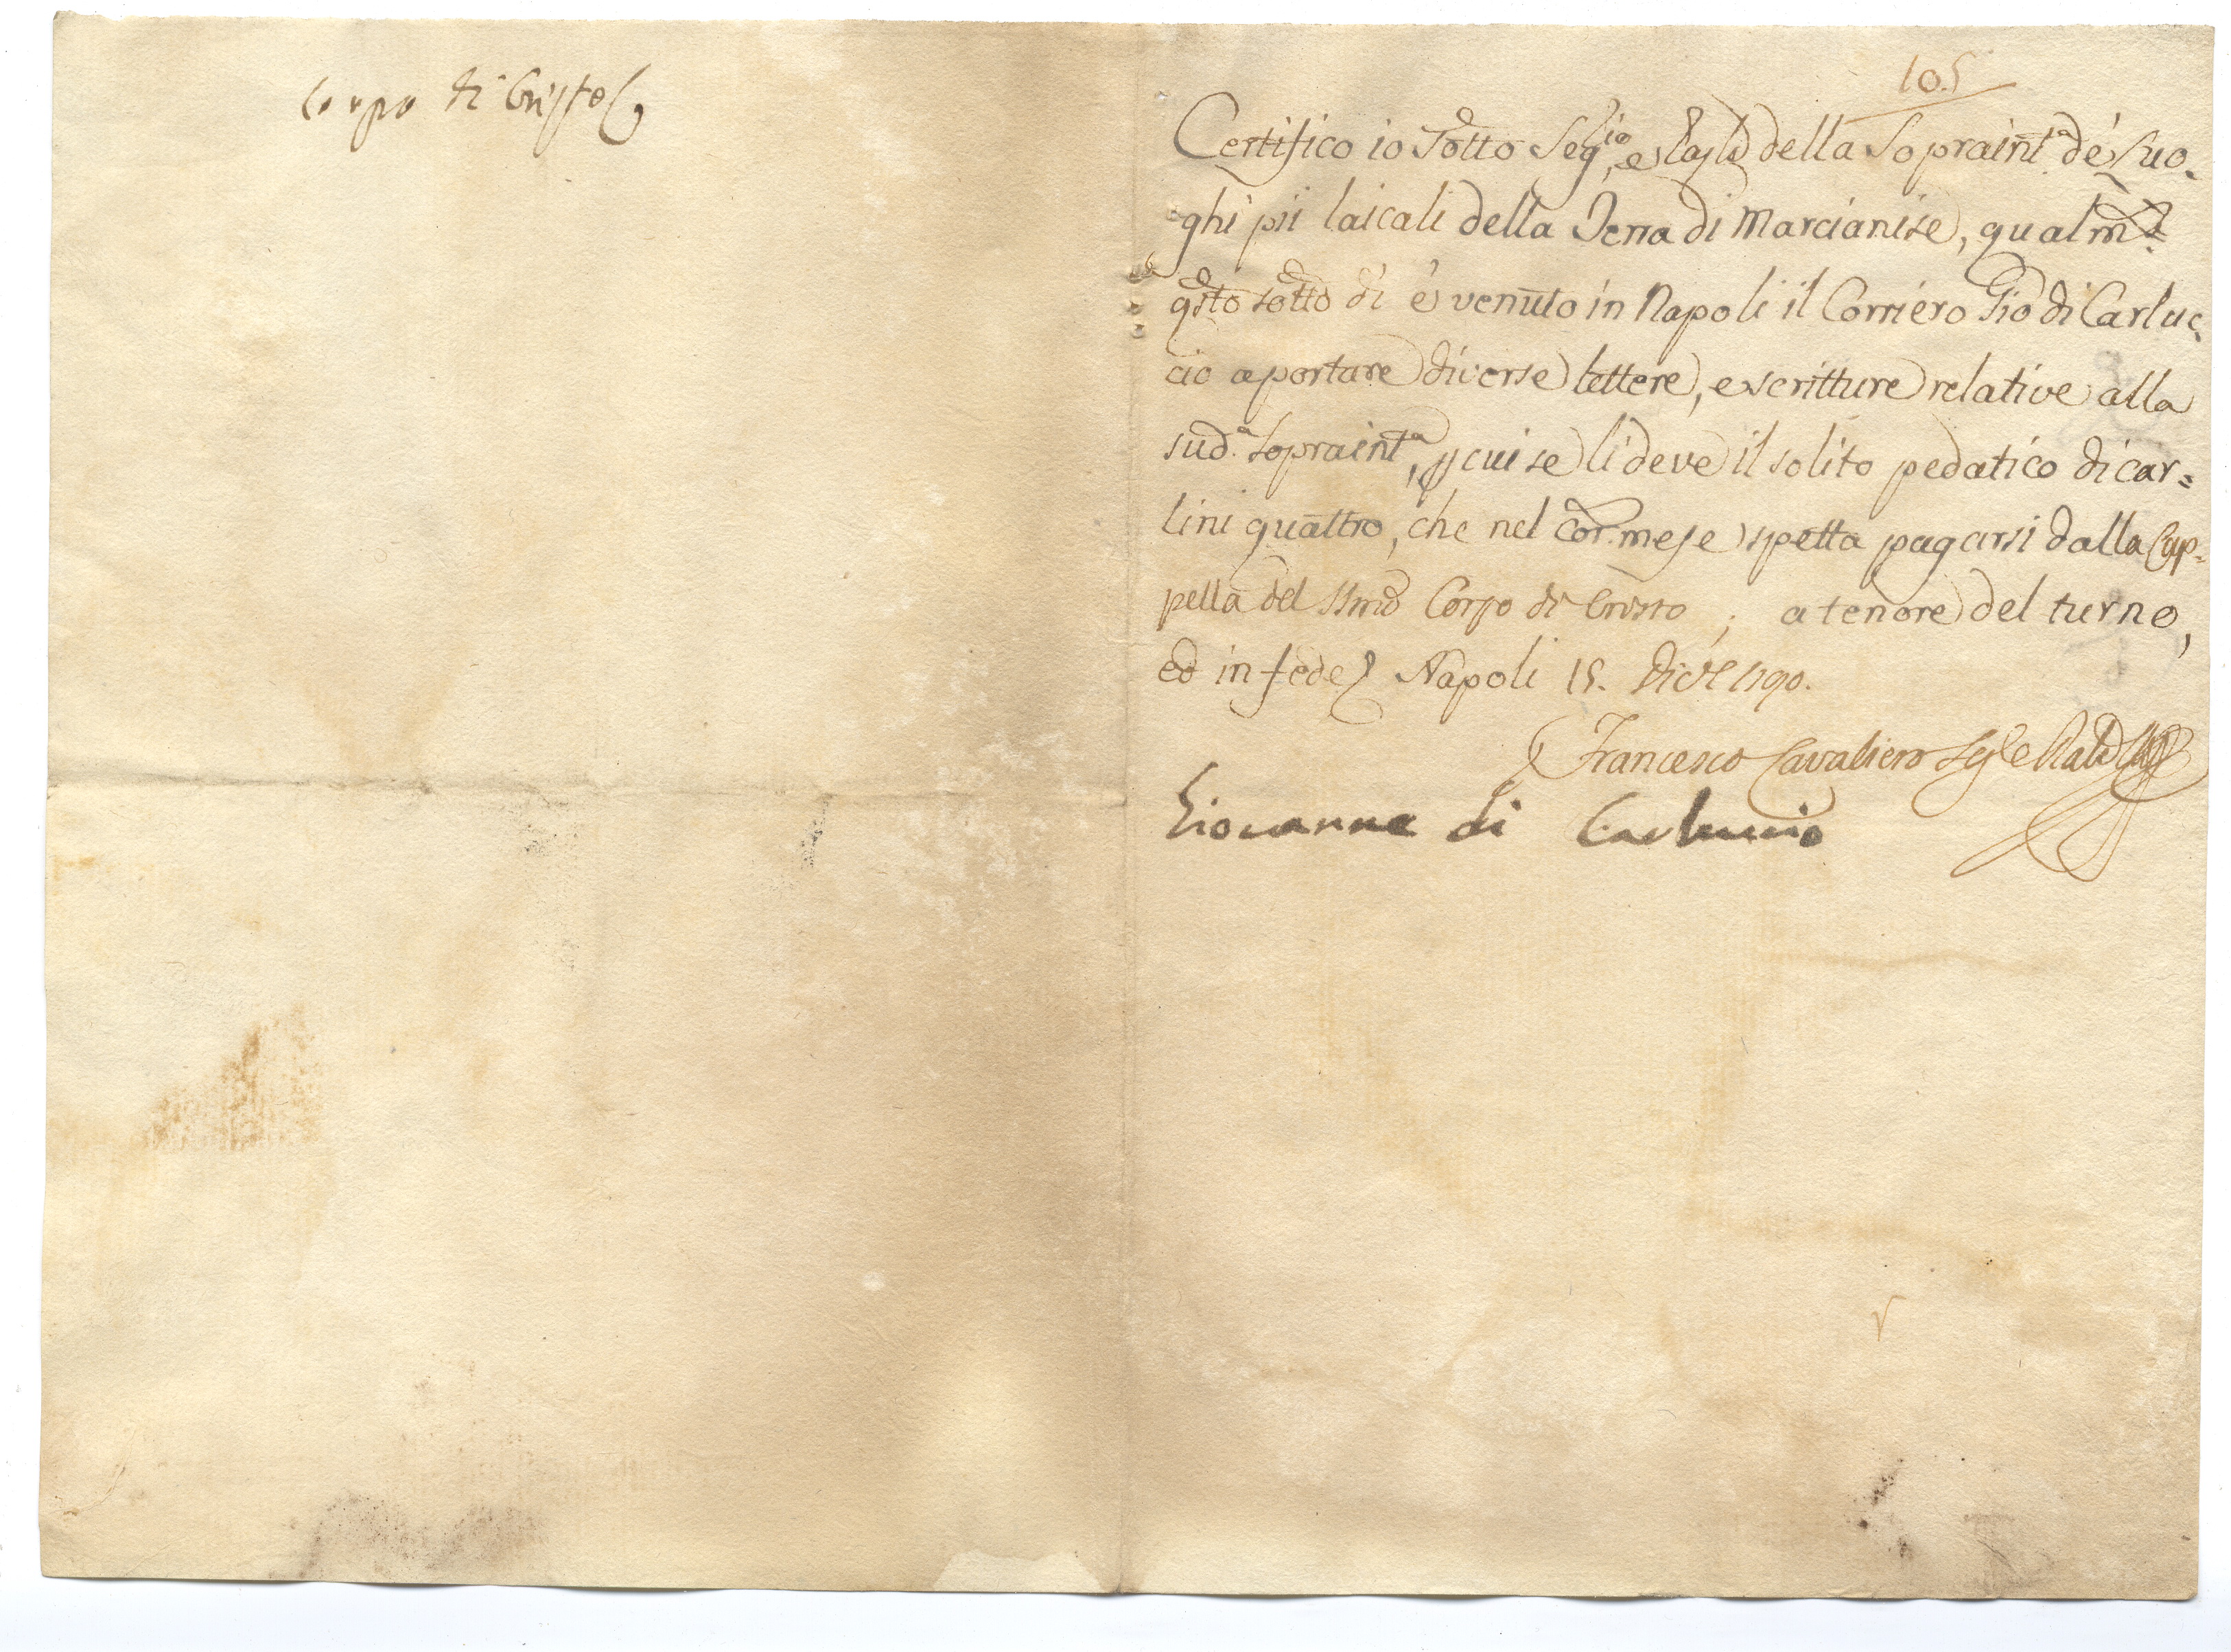 Corpo di Cristo
105
Certifico io sotto Seg.io, e Raz.le della Sopraint.a de' Luo-
ghi pii laicali della Terra di Marcianise, qualm.te
q̃sto sotto dì è venuto in Napoli il Corriero Gio di Carluc-
cio a portare diverse lettere, e scritture relative alla
sud.a Sopraint.a, p cui se li deve il solito pedatico di car=
lini quattro, che nel cor. mese spetta pagarsi dalla Cap-
pella del SSmo Corpo di Cristo ; a tenore del turno,
ed in fede Napoli 15. Dicbre 1790.
Francesco Cavaliero Seg.
Giovanne di Carluccio